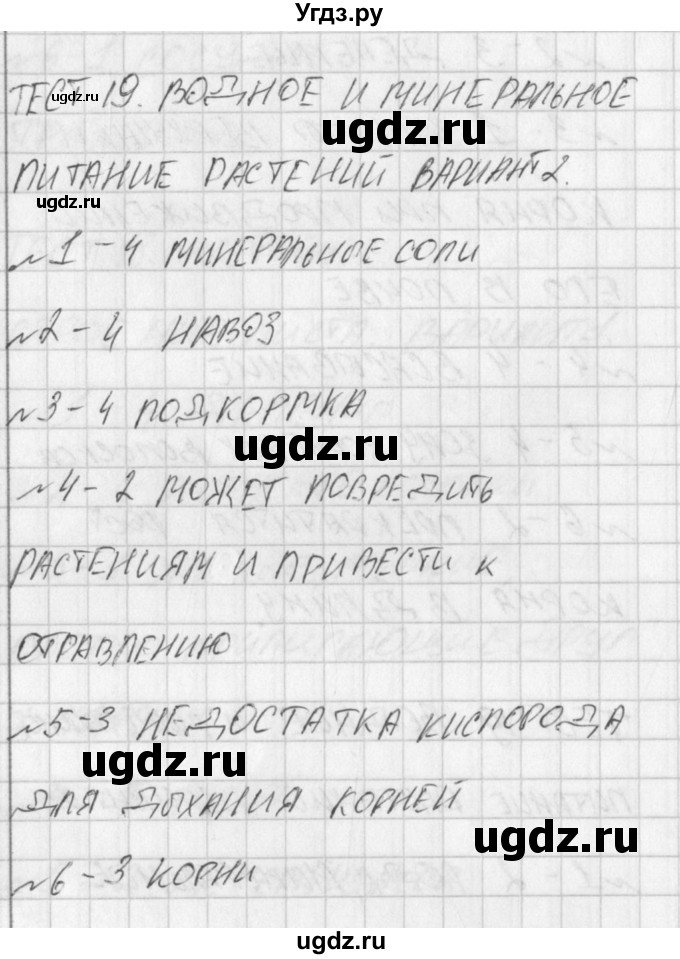 Угдз.ру
ТЕСТ 19. ВОДНОЕ И МИНЕРАЛЬНОЕ
ugdz.ru
ugdz.ru
ПИТАНИЕ РАСТЕНИЙ ВАРИАНТ 2.
ugdz.ru
№1 - 4 МИНЕРАЛЬНЫЕ СОЛИ
№2 - 4 НАВОЗ
№3 - 4 ПОДКОРМКА
ugdz.ru
№4 - 2 МОЖЕТ ПОВРЕДИТЬ
РАСТЕНИЯМ И ПРИВЕСТИ К
ОТРАВЛЕНИЮ
№5 - 3 НЕДОСТАТКА КИСЛОРОДА
ugdz.ru
ДЛЯ ДЫХАНИЯ КОРНЕЙ
ugdz.ru
№6 - 3 КОРНИ
ugdz.ru